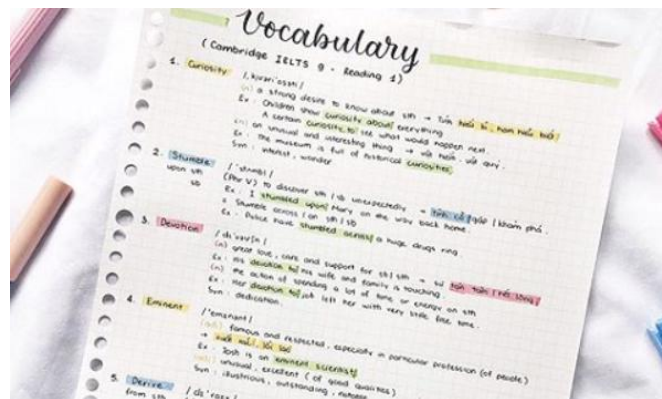 Vocabulary
(Cambridge IELTS 9 - Reading 1)
1. Curiosity
/ˌkjʊriˈɒsəti/
(n) a strong desire to know about sth →
Ex: Children show curiosity about everything
A certain curiosity to see what would happen next.
(n) an unusual and interesting thing → vật hiếm, vật quý.
Ex: The museum is full of historical curiosities
Syn: interest, wonder
2. Stumble
upon sth
sb
/ˈstʌmbl/
(Phr V) to discover sth / sb unexpectedly → tình cờ gặp / khám phá.
Ex: I stumbled upon Mary on the way back home.
= Stumble across / on sth / sb
Ex: Police have stumbled across a huge drugs ring.
3. Devotion
/dɪˈvəʊʃn/
(n) great love, care and support for sb / sth → sự tận tâm / hết lòng
Ex: His devotion to his wife and family is touching.
(n) the action of spending a lot of time or energy on sth
Ex: Her devotion to job left her with very little free time.
Syn: dedication.
4. Eminent
/ˈemɪnənt/
(adj) famous and respected, especially in particular profession (of people)
→ xuất sắc, lỗi lạc
Ex: Josh is an eminent scientist
(adj) unusual, excellent (of good qualities)
Syn: illustrious, outstanding,
5. Derive
from sth